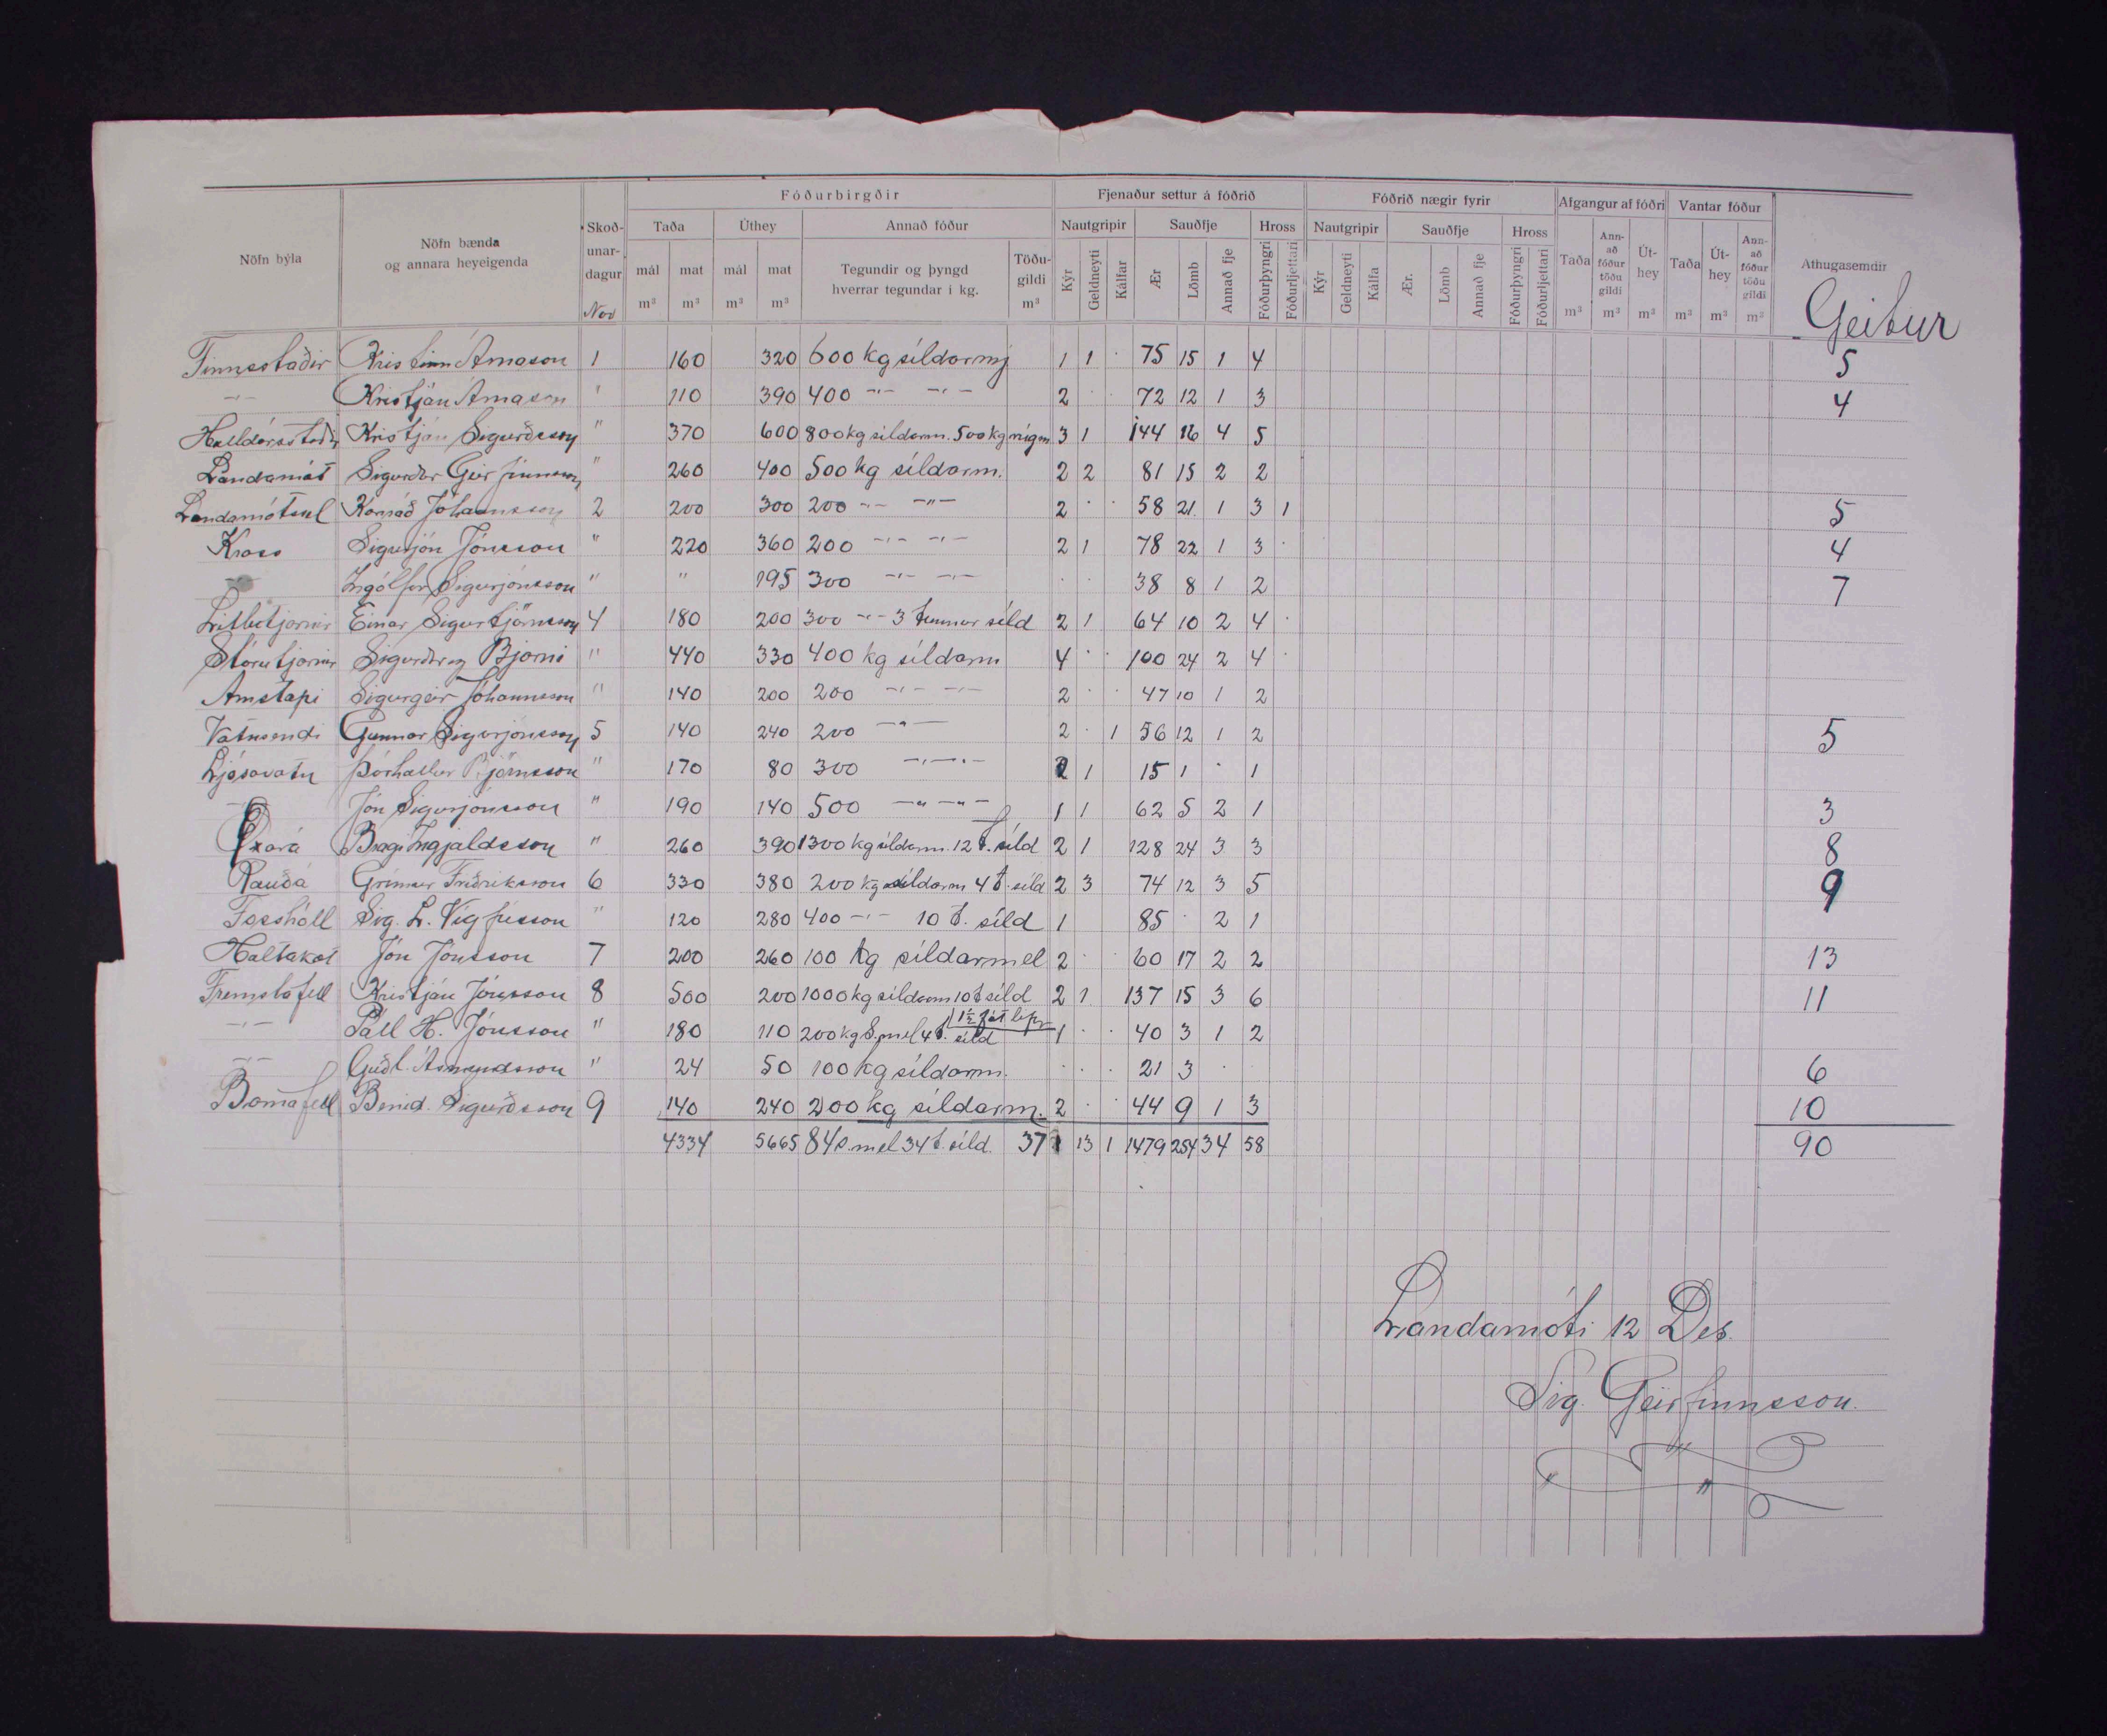 Fóðurbirgðir Fjenaður settur á fóðrið Fóðrið nægir fyrir Afgangur af fóðri Vantar fóður
Nöfn býla Nöfn bænda og annara heyeigenda Skoð-unar-dagur Nov Taða Úthey Annað fóður Nautgripir Sauðfje Hross Nautgripir Sauðfje Hross Athugasemdir
mál m³ mat m³ mál m³ mat m³ Tegundir og þyngd hverrar tegundar í kg. Töðu-gildi m³ Kýr Geldneyti Kálfar Ær Lömb Annað fje Fóðurþyngri Fóðurljettari Kýr Geldneyti Kálfa Ær. Lömb Annað fje Fóðurþyngri Fóðurljettari Taða m³ Ann-að fóður töðu gildi m³ Út-hey m³ Taða m³ Út-hey m³ Ann-að fóður töðu gildi m³ Geitur
Finnsstaðir Kristinn Árnason 1 160 320 600 kg síldarmj 1 1 · 75 15 1 4 5
-"- Kristján Árnason " 110 390 400 -"- -"- 2 · · 72 12 1 3 4
Halldórsstaðir Kristján Sigurðsson " 370 600 800 kg síldarm. 500 kg rúgm 3 1 144 16 4 5
Landamót Sigurður Geirfinnsson " 260 400 500 kg síldarm. 2 2 81 15 2 2
Landamótsel Konráð Jóhannsson 2 200 300 200 -"- -"- 2 · · 58 21 1 3 1 5
Kross Sigurjón Jónsson " 220 360 200 -"- -"- 2 1 78 22 1 3 · 4
Ingólfur Sigurjónsson " " 195 300 -"- -"- · · 38 8 1 2 7
Litlutjarnir Einar Sigurbjörnsson 4 180 200 300 -"- 3 tunnur síld 2 1 64 10 2 4 ·
Stórutjarnir Sigurður og Bjarni " 440 330 400 kg síldarm 4 · · 100 24 2 4 ·
Arnstapi Sigurgeir Jóhannsson " 140 200 200 -"- -"- 2 · · 47 10 1 2
Vatnsendi Gunnar Sigurjónsson 5 140 240 200 -"- 2 · 1 56 12 1 2 5
Ljósavatn Þórhallur Björnsson " 170 80 300 -"-"- 2 1 15 1 · 1
Jón Sigurjónsson " 190 140 500 -"-"- 1 1 62 5 2 1 3
Öxará Bragi Ingjaldsson " 260 390 1300 kg síldarm. 12 t. síld 2 1 128 24 3 3 8
Rauðá Grímur Friðriksson 6 330 380 200 kg síldarm 4 t. síld 2 3 74 12 3 5 9
Fossholl Sig. L. Vigfússon " 120 280 400 -"- 10 t. síld 1 85 · 2 1
Holtakot Jón Jónsson 7 200 260 100 kg síldarmel 2 · · 60 17 2 2 13
Fremstafell Kristján Jónsson 8 500 200 1000 kg síldarm 10 t síld 2 1 137 15 3 6 11
-"- Páll H. Jónsson " 180 110 200 kg S.mel 4 t. síld 1 · · 40 3 1 2
-"- Guðl. Ásmundsson " 24 50 100 kg síldarm. · · · 21 3 · 6
Barnafell Bened. Sigurðsson 9 140 240 200 kg síldarm. 2 · · 44 9 1 3 10
4334 5665 84 s.mel 34 t. síld. 37 13 1 1479 254 34 58 90
Landamóti 12 Des.
Sig. Geirfinnsson.